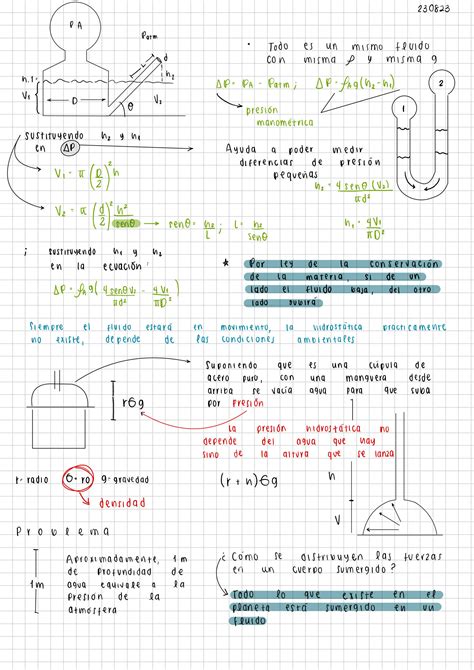 230823
PA
Patm
d
h.1
h2
V1
D
V2
θ
• Todo es un mismo fluido
con misma ρ y misma g
ΔP = PA - Patm ; ΔP = ρg(h2-h1)
presión
manométrica
1
2
sustituyendo h2 y h1
en ΔP
V1 = π (D/2)² h
V2 = π (d/2)² h2/senθ
senθ = h2/L ; L = h2/senθ
Ayuda a poder medir
diferencias de presión
pequeñas
h2 = 4 senθ (V2)/πd²
h1 = 4V1/πD²
; sustituyendo h1 y h2
en la ecuación:
ΔP = ρg( 4 senθ V2/πd² - 4V1/πD² )
* Por ley de la conservación
de la materia, si de un
lado el fluido baja, del otro
lado subirá
Siempre el fluido estará en movimiento, la hidrostática prácticamente
no existe, depende de las condiciones ambientales
rϬg
Suponiendo que es una cúpula de
acero puro, con una manguera desde
arriba se vacía agua para que suba
por presión
La presión hidrostática no
depende del agua que hay
sino de la altura que se lanza
r- radio Ϭ- ro g- gravedad
densidad
(r + h)Ϭg
h
V
Problema
1m
Aproximadamente, 1m
de profundidad de
agua equivale a la
presión de la
atmósfera
¿Cómo se distribuyen las fuerzas
en un cuerpo sumergido?
Todo lo que existe en el
planeta está sumergido en un
fluido